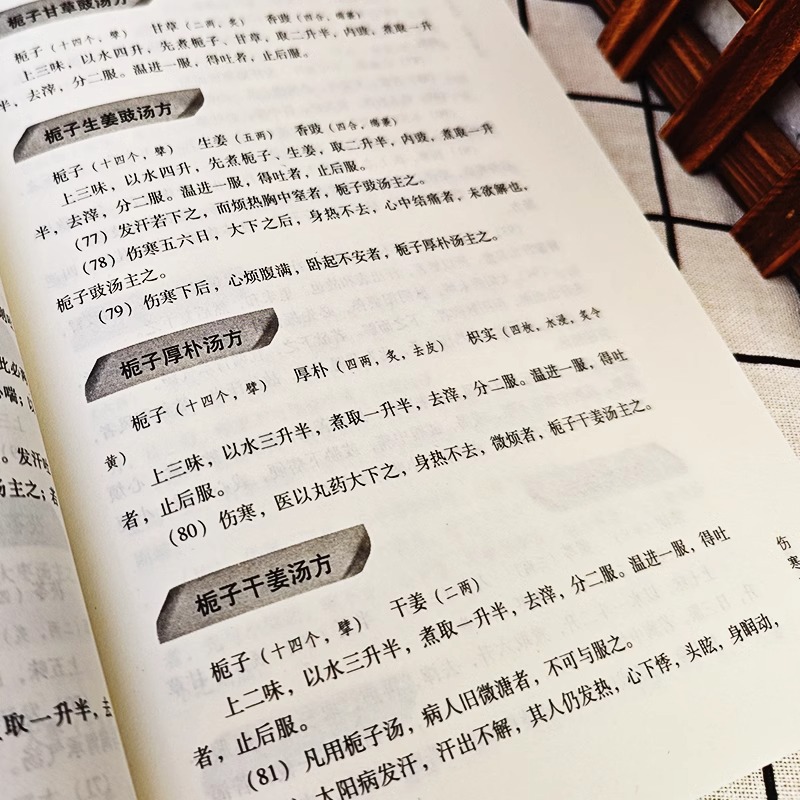 栀子甘草豉汤方
栀子（十四个，擘） 甘草（二两，炙） 香豉（四合，绵裹）
上三味，以水四升，先煮栀子、甘草，取二升半，内豉，煮取一升
半，去滓，分二服。温进一服，得吐者，止后服。
栀子生姜豉汤方
栀子（十四个，擘） 生姜（五两） 香豉（四合，绵裹）
上三味，以水四升，先煮栀子、生姜，取二升半，内豉，煮取一升
半，去滓，分二服。温进一服，得吐者，止后服。
（77）发汗若下之，而烦热胸中窒者，栀子豉汤主之。
（78）伤寒五六日，大下之后，身热不去，心中结痛者，未欲解也，
栀子豉汤主之。
（79）伤寒下后，心烦腹满，卧起不安者，栀子厚朴汤主之。
栀子厚朴汤方
栀子（十四个，擘） 厚朴（四两，炙，去皮） 枳实（四枚，水浸，炙令
黄）
上三味，以水三升半，煮取一升半，去滓，分二服。温进一服，得吐
者，止后服。
（80）伤寒，医以丸药大下之，身热不去，微烦者，栀子干姜汤主之。
栀子干姜汤方
栀子（十四个，擘） 干姜（二两）
上二味，以水三升半，煮取一升半，去滓，分二服。温进一服，得吐
者，止后服。
（81）凡用栀子汤，病人旧微溏者，不可与服之。
太阳病发汗，汗出不解，其人仍发热，心下悸，头眩，身瞤动，
此必
喘；
。发汗
汤主之；若
取一升半，去
伤
寒